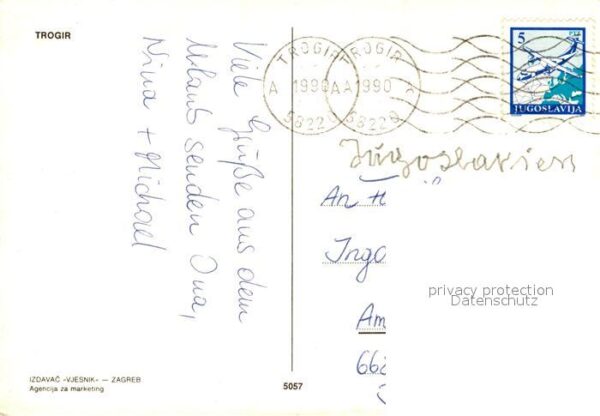 TROGIR
Viele Grüße aus dem
Urlaub senden Ina,
Nina + Michael
IZDAVAČ «VJESNIK» — ZAGREB
Agencija za marketing
5057
TROGIR
A 1990 A
58220
TROGIR
A 1990
58220
5 PTT
JUGOSLAVIJA
Jugoslawien
An H
Ingo
Am
662
privacy protection
Datenschutz